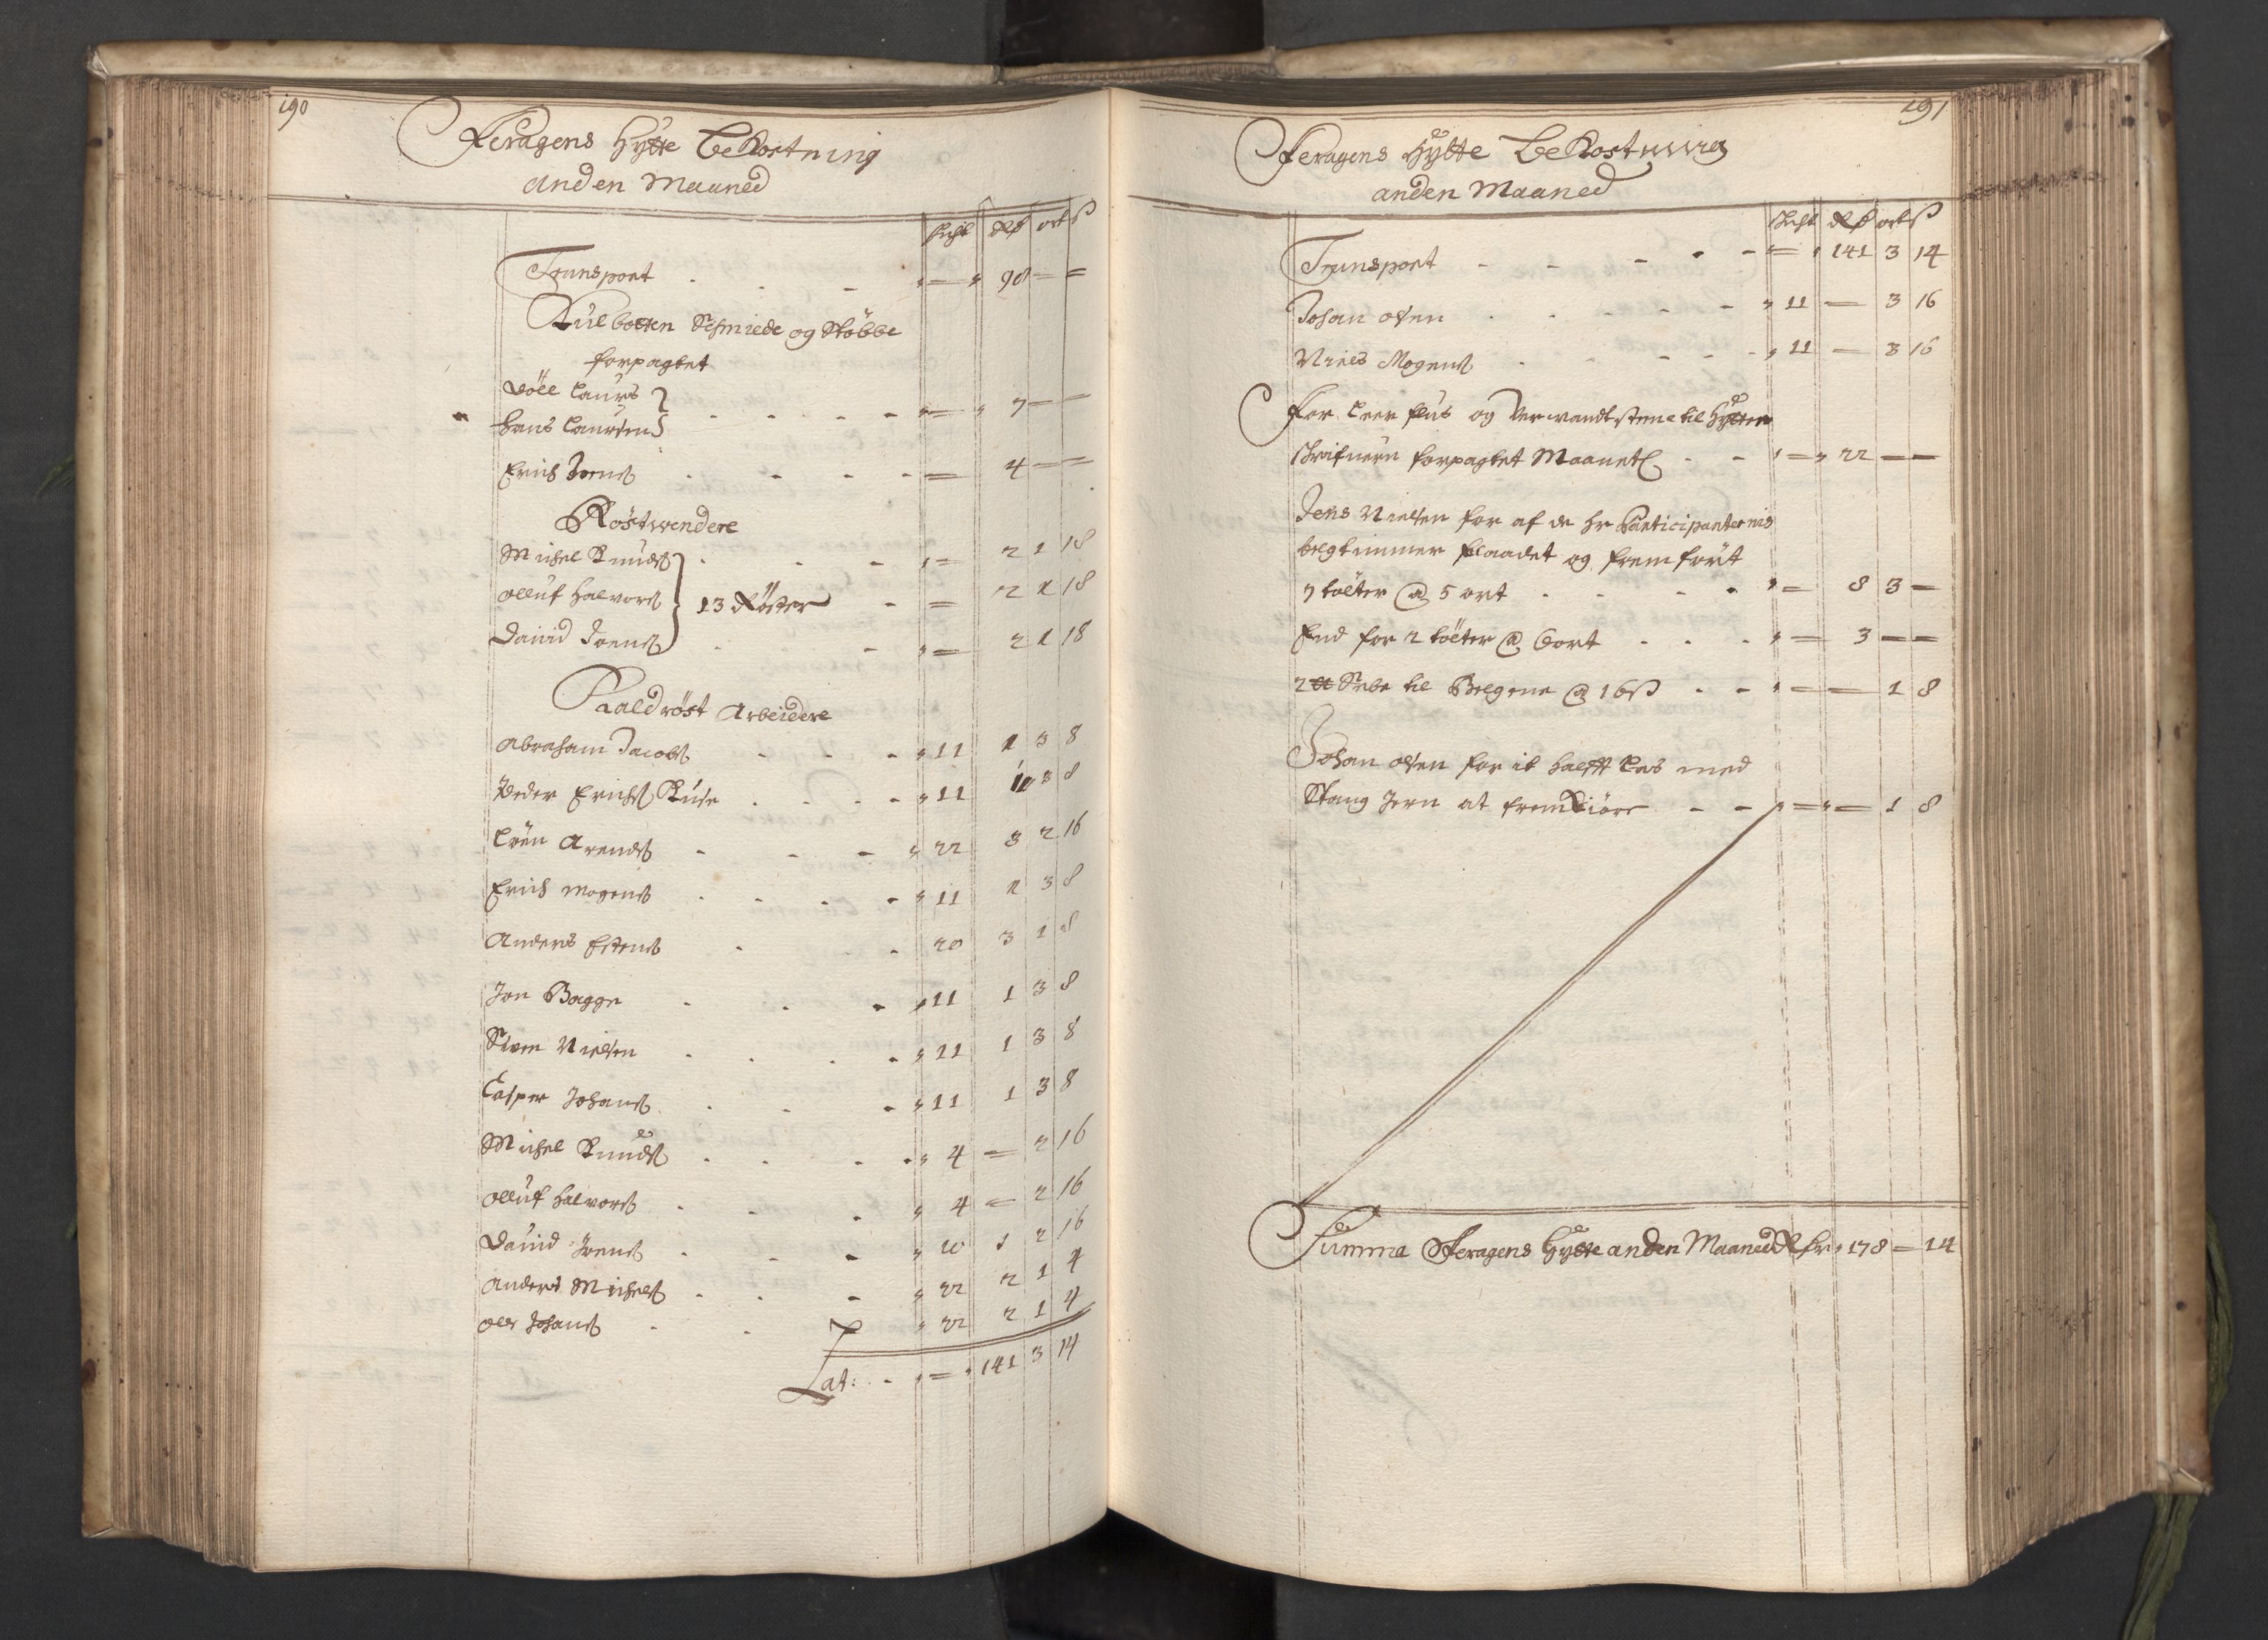 190
Feragens Hÿtte Bekostning
anden Maaned
skift Rdr ort ß
Transport . . - " = " 98 = =
Kulbotten Schmiede og Stöbbe
forpagtet
Töll Laurs
Hans Laursen } . . - - - " = " 7 = =
Erich Joens . - - - = 4 = =
Röstwendere
Michel Knuds . - - " = 2 1 18
Olluf Halvors } 13 Röster - = 2 1 18
David Joens . - " = 2 1 18
Kaldröst Arbeidere
Abraham Jacobs - - - " 11 1 3 8
Peder Erichs Kuse . . - - " 11 1 3 8
Lören Arends - - - " 22 3 2 16
Erich Mogens . - . - " 11 1 3 8
Anders Estens . - 20 3 1 8
Jon Bagge . . - " 11 1 3 8
Swen Nielsen . . . - " 11 1 3 8
Casper Johans . - - " 11 1 3 8
Michel Knuds . . - - " 4 = 2 16
Olluf Halvors . . - " 4 = 2 16
David Joens . - - " 10 1 2 16
Anders Michels . . - " 22 2 1 4
Ole Johans . . " 22 2 1 4
Lat: - " = " 141 3 14
191
Feragens Hÿtte Bekostning
anden Maaned
skift Rdr ort ß
Transport - - - - - = " 141 3 14
Johan Olsen . . - - - " 11 — 3 16
Niels Mogens . . - - - " 11 — 3 16
For Leer flus og Verwandtstene til Hytten
skrifuern forpagtet Maanetl - - " = " 22 — —
Jens Nielsen for af de Hr Participanternis
belgtimmer flaadet og fremfört
7 tölter @ 5 ort . . - - " = 8 3 —
End for 2 tölter @ 6 ort . . . " = 3 — —
2 ℔ Sebe til Belgene @ 16 ß . - " = — 1 8
Johan Olsen for it halfft Les med
Stang Jern at fremkiöre - - " = " = 1 8
Summa Feragens Hytte anden Maaned Rdr " 178 = 14